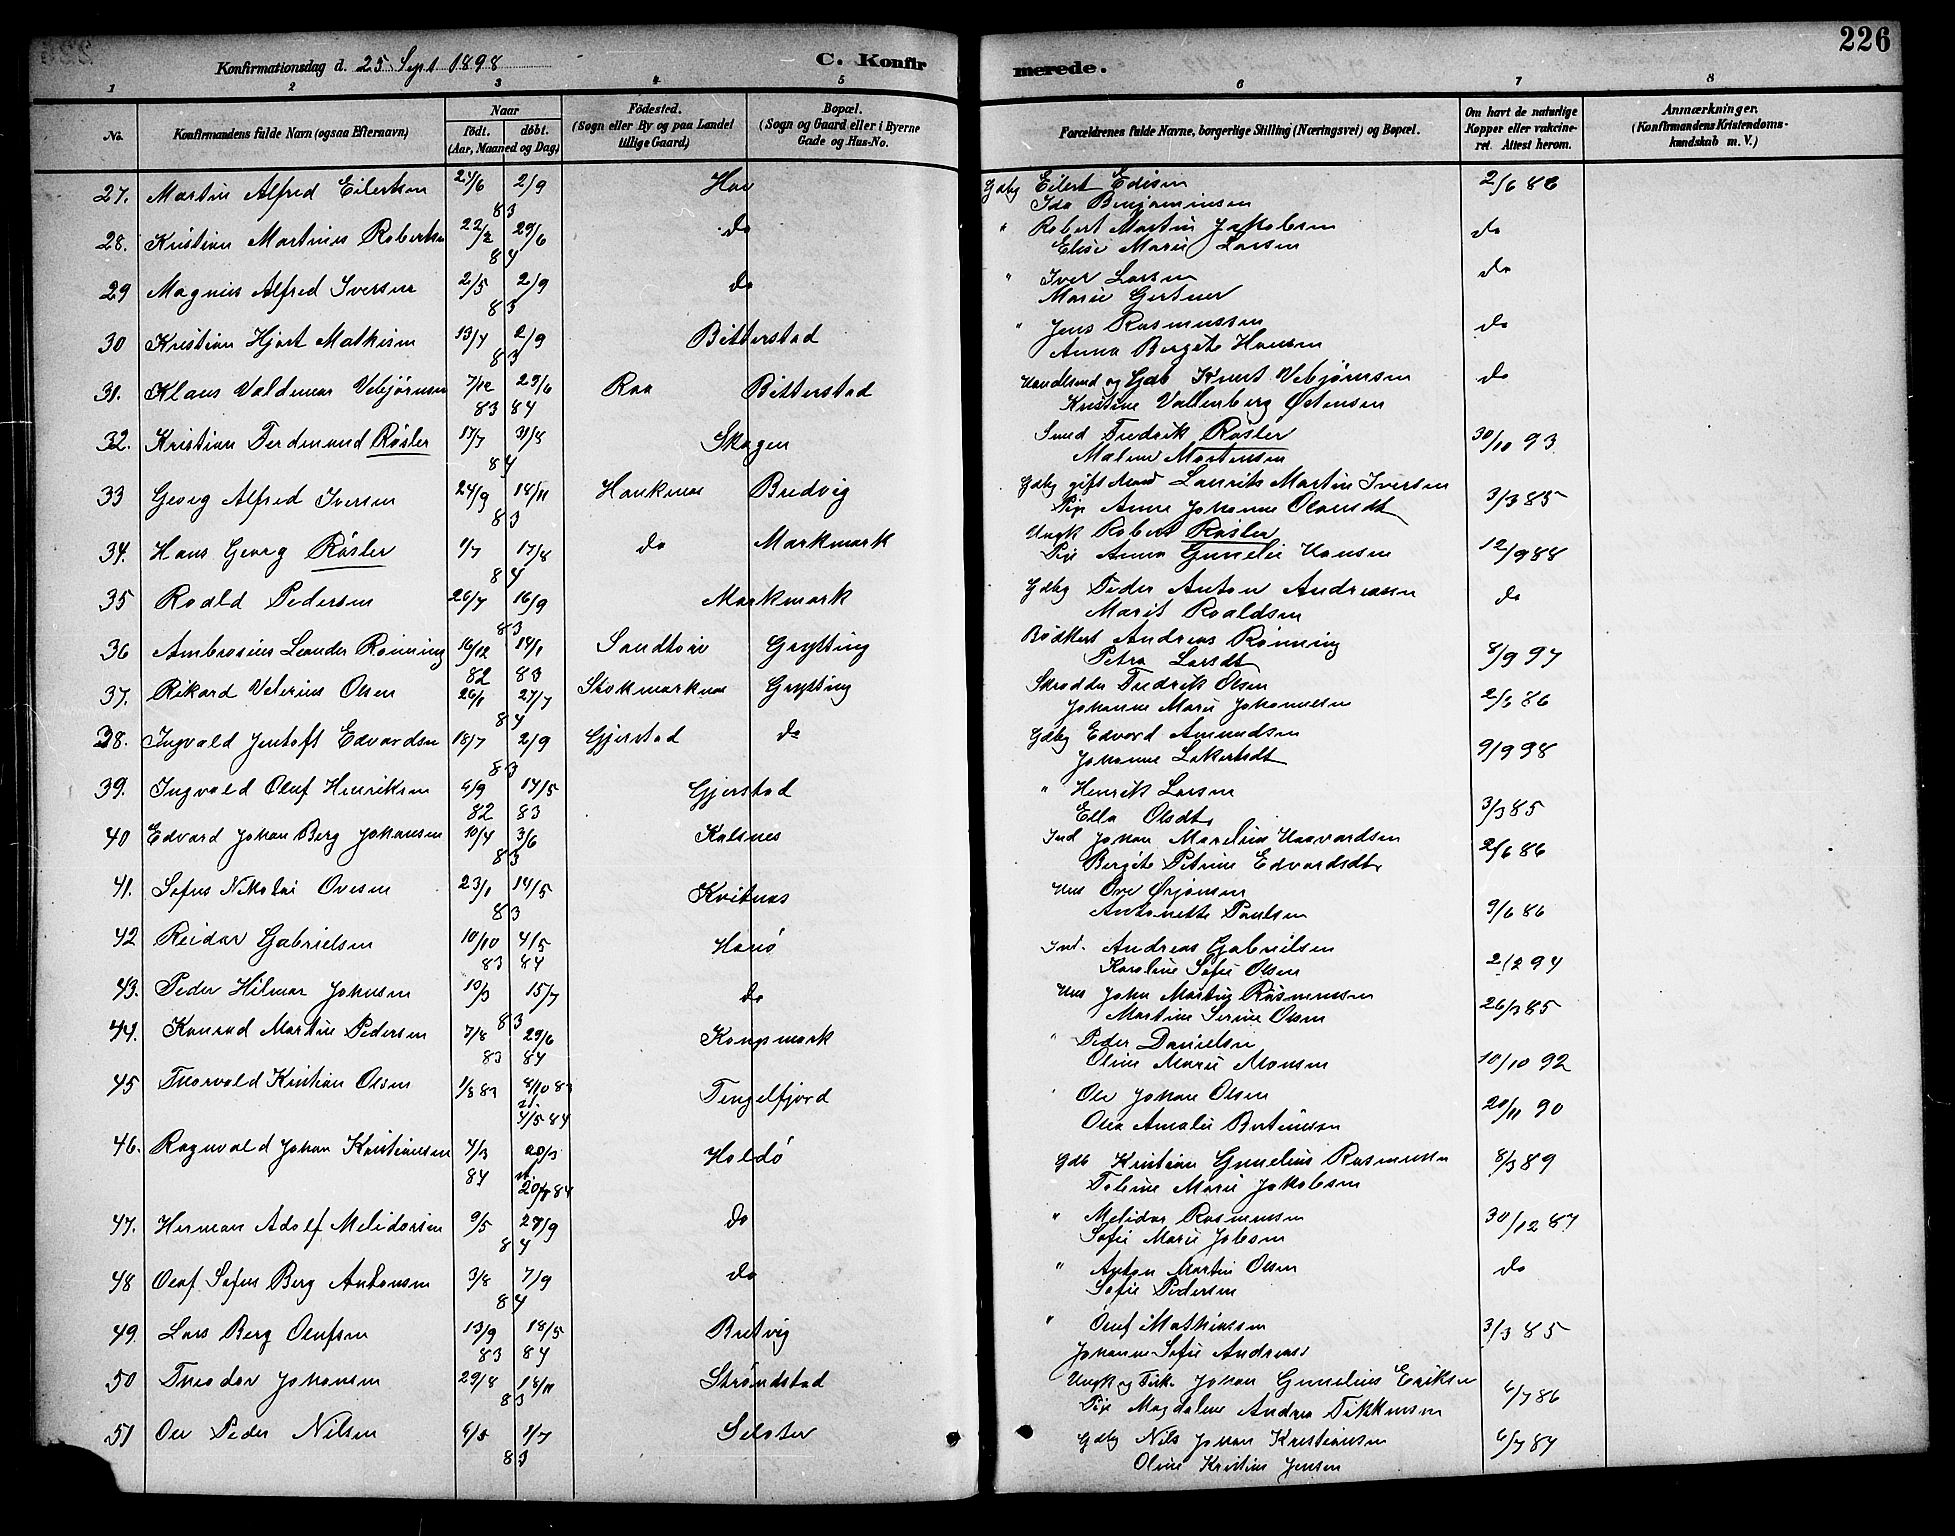 226
Konfirmationsdag d. 25 Sept 1898 C. Konfirmerede.
1 2 3 4 5 6 7 8
No. Konfirmandens fulde Navn (ogsaa Efternavn) Naar født. døbt. (Aar, Maaned og Dag) Fødested. (Sogn eller By og paa Landet tillige Gaard) Bopæl. (Sogn og Gaard eller i Byerne Gade og Hus-No. Forældrenes fulde Navne, borgerlige Stilling (Næringsvei) og Bopæl. Om havt de naturlige Kopper eller vakcineret. Attest herom. Anmærkninger. (Konfirmandens Kristendomskundskab m. V.)
27. Martin Alfred Eilertsen 24/6 2/9 83 Hov Gdbg Eilert Edisen 2/6 86
Ida Benjaminsen
28. Kristian Martinus Robertsen 22/2 29/6 84 do " Robert Martin Jakobsen do
Elise Marie Larsen
29 Magnus Alfred Iversen 2/5 2/9 83 do " Iver Larsen do
Marie Gertner
30 Kristian Hjort Mathisen 13/4 2/9 83 Bitterstad " Jens Rasmussen do
Anna Bergete Hansen
31. Klaus Valdemar Vebjørnsen 7/12 83 29/6 84 Raa Bitterstad Handlsmd og Gdb Knut Vebjørnsen do
Kristine Vallenberg Østensen
32. Kristian Ferdinand Røsler 17/7 31/8 84 Skagen Smed Fredrik Røsler 30/10 93
Malene Mortensen
33 Georg Alfred Iversen 24/9 18/11 83 Hauknes Bredvig Gdbg gift Mand Laurits Martin Iversen 3/3 85
Pige Anne Johanne Olavsdt
34. Hans Georg Røsler 1/7 17/8 84 do Markmark Ungk Robert Røsler 12/9 88
Pige Anna Gunelie Hansen
35 Roald Pedersen 26/7 16/9 83 Markmark Gdbg Peder Anton Andreassen do
Marit Roaldsen
36 Ambrosius Leander Rønning 16/12 82 14/1 83 Sandtorv Grytting Bødkers Andreas Rønning 8/9 97
Petra Larsdt
37. Rikard Velerius Olsen 26/1 27/7 84 Stokmarknes Grytting Skrædder Fredrik Olsen 2/6 86
Johanne Marie Johannesen
38. Ingvald Jentoft Edvardsen 18/7 2/9 83 Gjerstad do Gdbg Edvard Amundsen 9/9 98
39. Ingvald Oluf Henriksen 6/9 82 14/5 83 Gjerstad " Henrik Larsen 3/3 85
Ella Olsdt
40 Edvard Johan Berg Johansen 10/4 3/6 83 Kalsnes Ind Johan Marelius Haavardsen 2/6 86
Bergete Petrine Edvardsdt
41. Sofus Nikolai Ovesen 23/1 14/5 83 Kvitnes Hus Ove Ørjansen 9/6 86
Antonette Paulsen
42 Reidar Gabrielsen 10/10 83 4/5 84 Hanø Ind. Andreas Gabrielsen 2/2 94
Karoline Sofie Olsen
43. Peder Hilmar Johnsen 10/3 15/7 83 do Hus John Martin Rasmussen 26/3 85
Martine Serine Olsen
44. Konrad Martin Pedersen 7/8 83 29/6 84 Kongsmark " Peder Danielsen 10/10 92
Oline Marie Monsen
45 Thorvald Kristian Olsen 1/8 83 8/10 83 st. 4/5 84 Tengelfjord " Ole Johan Olsen 20/11 90
Olea Amalie Bertinesen
46. Ragnvald Johan Kristiansen 4/3 84 20/3 st. 20/7 84 Holdø Gdb Kristian Gunelius Rasmussen 8/3 89
Toline Marie Jakobsen
47. Herman Adolf Melidorsen 9/5 27/9 84 do " Melidor Rasmussen 30/12 87
Sofie Marie Jobsen
48 Olaf Sofus Berg Antonsen 3/8 7/9 84 do " Anton Martin Olsen do
Sofie Pedersen
49. Lars Berg Olufsen 13/9 83 18/5 84 Bretvig " Oluf Mathiassen 3/3 85
Johanne Sofie Andreass
50 Theodor Johansen 29/8 18/11 83 Strøndstad Ungk og Fisk. Johan Gunelius Eriksen 6/7 86
Pige Magdalene Andrea Fikkensen
51 Ole Peder Nilsen 6/5 1/7 83 Selater Gdbg Nils Johan Kristiansen 6/7 84
Oline Kristine Jensen